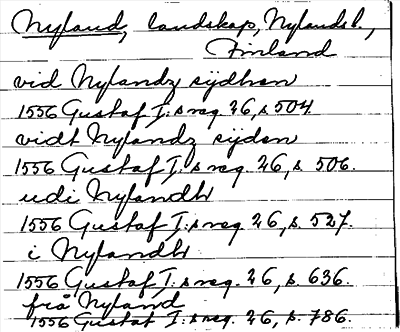 Nyland, landskap, Nylands l.,
Finland
vid Nylandz sijdhen
1556 Gustaf I:s reg. 26, s. 504.
vidt Nylandz sijden
1556 Gustaf I:s reg. 26, s. 506.
udi Nylandh
1556 Gustaf I:s reg. 26, s. 527.
i Nylandh
1556 Gustaf I:s reg. 26, s. 636.
frå Nyland
1556 Gustaf I:s reg. 26, s. 786.